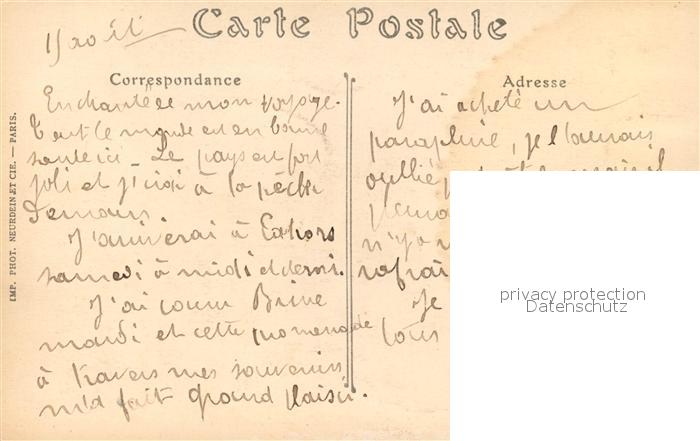 15 août
Carte Postale
Correspondance
Enchantée de mon voyage.
Tout le monde est en bonne
santé ici - Le pays est fort
joli et j'irai à la pêche
demain.
J'arriverai à Cahors
samedi à midi et demi.
J'ai couru Brive
mardi et cette promenade
à travers mes souvenirs
m'a fait grand plaisir.
Adresse
J'ai acheté un
parapluie, je l'aurais
oublié
n'y a
rafraî
Je
tous
IMP. PHOT. NEURDEIN ET CIE. — PARIS.
privacy protection
Datenschutz